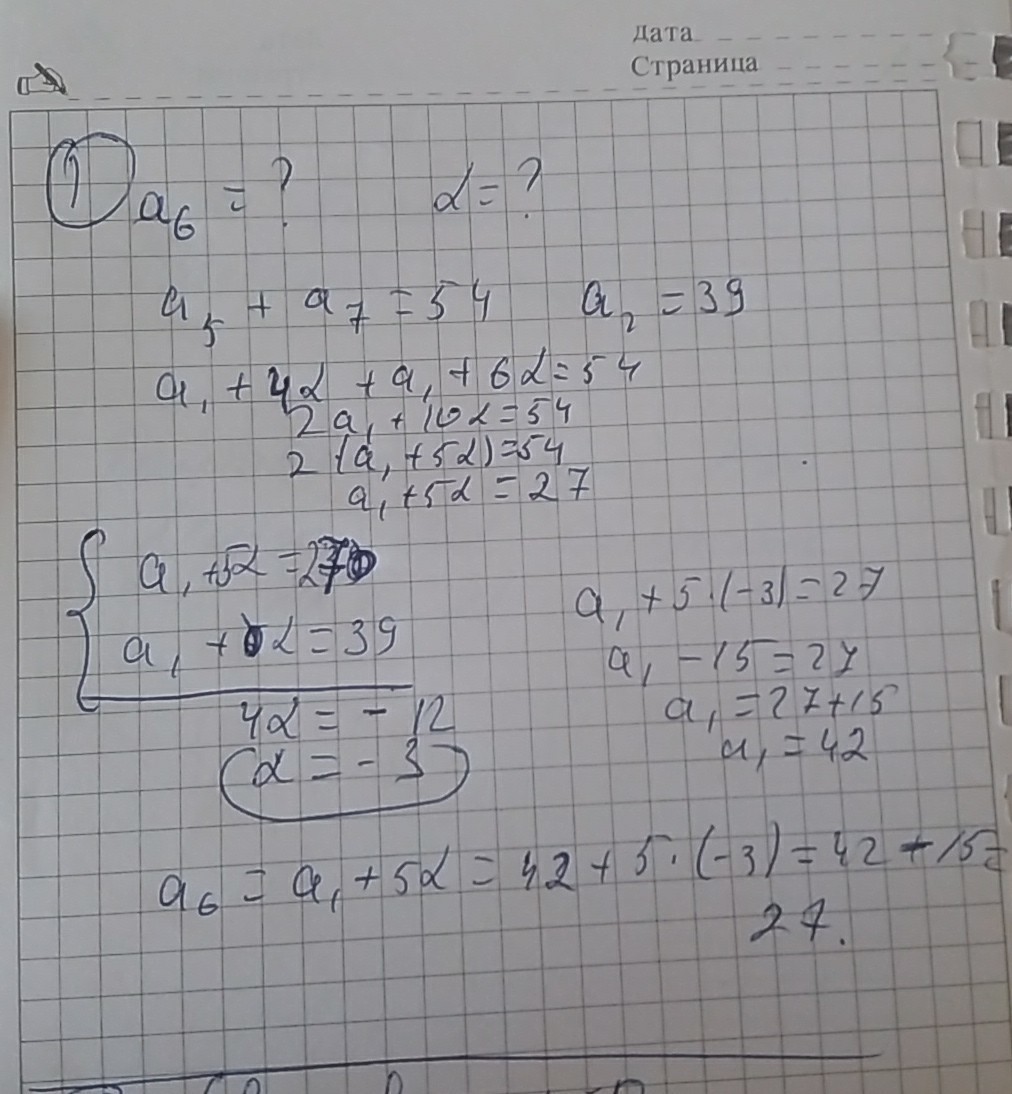 Дата
Страница
1
a₆ = ? d = ?
a₅ + a₇ = 54 a₂ = 39
a₁ + 4d + a₁ + 6d = 54
2a₁ + 10d = 54
2(a₁ + 5d) = 54
a₁ + 5d = 27
a₁ + 5d = 27
a₁ + d = 39
4d = - 12
d = - 3
a₁ + 5·(-3) = 27
a₁ - 15 = 27
a₁ = 27 + 15
a₁ = 42
a₆ = a₁ + 5d = 42 + 5·(-3) = 42 - 15 =
27.